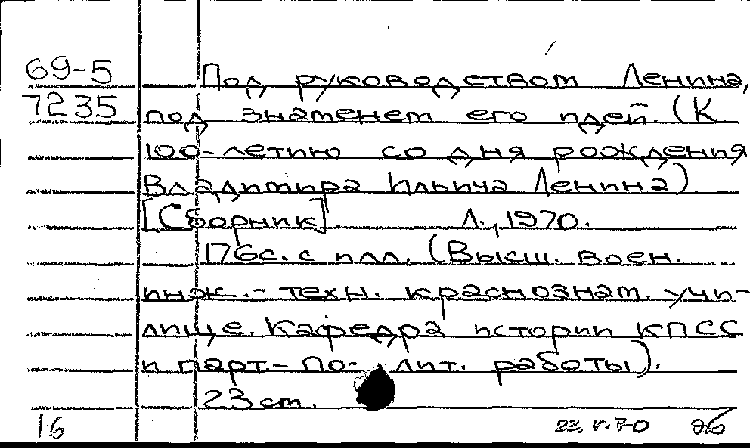 69-5 Под руководством Ленина,
7235 под знаменем его идей. (К
100-летию со дня рождения
Владимира Ильича Ленина)
[Сборник] Л., 1970.
176с. с илл. (Высш. воен.
инж.-техн. краснознам. учи-
лище. Кафедра истории КПСС
и парт-по- лит. работы).
23 cm.
16 23.V.70